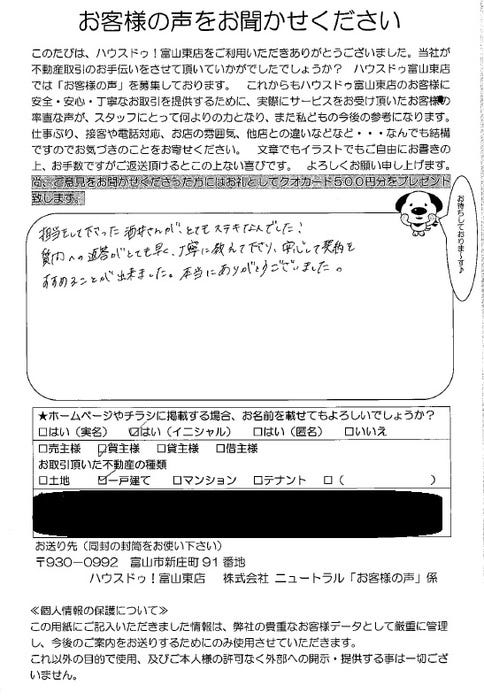 お客様の声をお聞かせください
このたびは、ハウスドゥ！富山東店をご利用いただきありがとうございました。当社が
不動産取引のお手伝いをさせて頂いていかがでしたでしょうか？ ハウスドゥ富山東店
では「お客様の声」を募集しております。 これからもハウスドゥ富山東店のお客様に
安全・安心・丁寧なお取引を提供するために、実際にサービスをお受け頂いたお客様の
率直な声が、スタッフにとって何よりの力となり、また私どもの今後の参考になります。
仕事ぶり、接客や電話対応、お店の雰囲気、他店との違いなどなど・・・なんでも結構
ですのでお気づきのことをお寄せください。 文章でもイラストでもご自由にお書きの
上、お手数ですがご返送頂けるとこの上ない喜びです。 よろしくお願い申し上げます。
尚、ご意見をお聞かせくださった方にはお礼としてクオカード500円分をプレゼント
致します。
お待ちしておりま～す♪
担当をして下さった酒村さんが、とてもステキなんでした！
質問への返答がとても早く、丁寧に教えて下さり、安心して契約を
すすめることが出来ました。本当にありがとうございました。
★ホームページやチラシに掲載する場合、お名前を載せてもよろしいでしょうか？
□はい（実名） ☑はい（イニシャル） □はい（匿名） □いいえ
□売主様 ☑買主様 □貸主様 □借主様
お取引頂いた不動産の種類
□土地 ☑一戸建て □マンション □テナント □（ ）
お送り先（同封の封筒をお使い下さい）
〒930-0992 富山市新庄町91番地
ハウスドゥ！富山東店 株式会社 ニュートラル「お客様の声」係
≪個人情報の保護について≫
この用紙にご記入いただきました情報は、弊社の貴重なお客様データとして厳重に管理
し、今後のご案内をお送りするためにのみ使用させていただきます。
これ以外の目的で使用、及びご本人様の許可なく外部への開示・提供する事は一切ござ
いません。